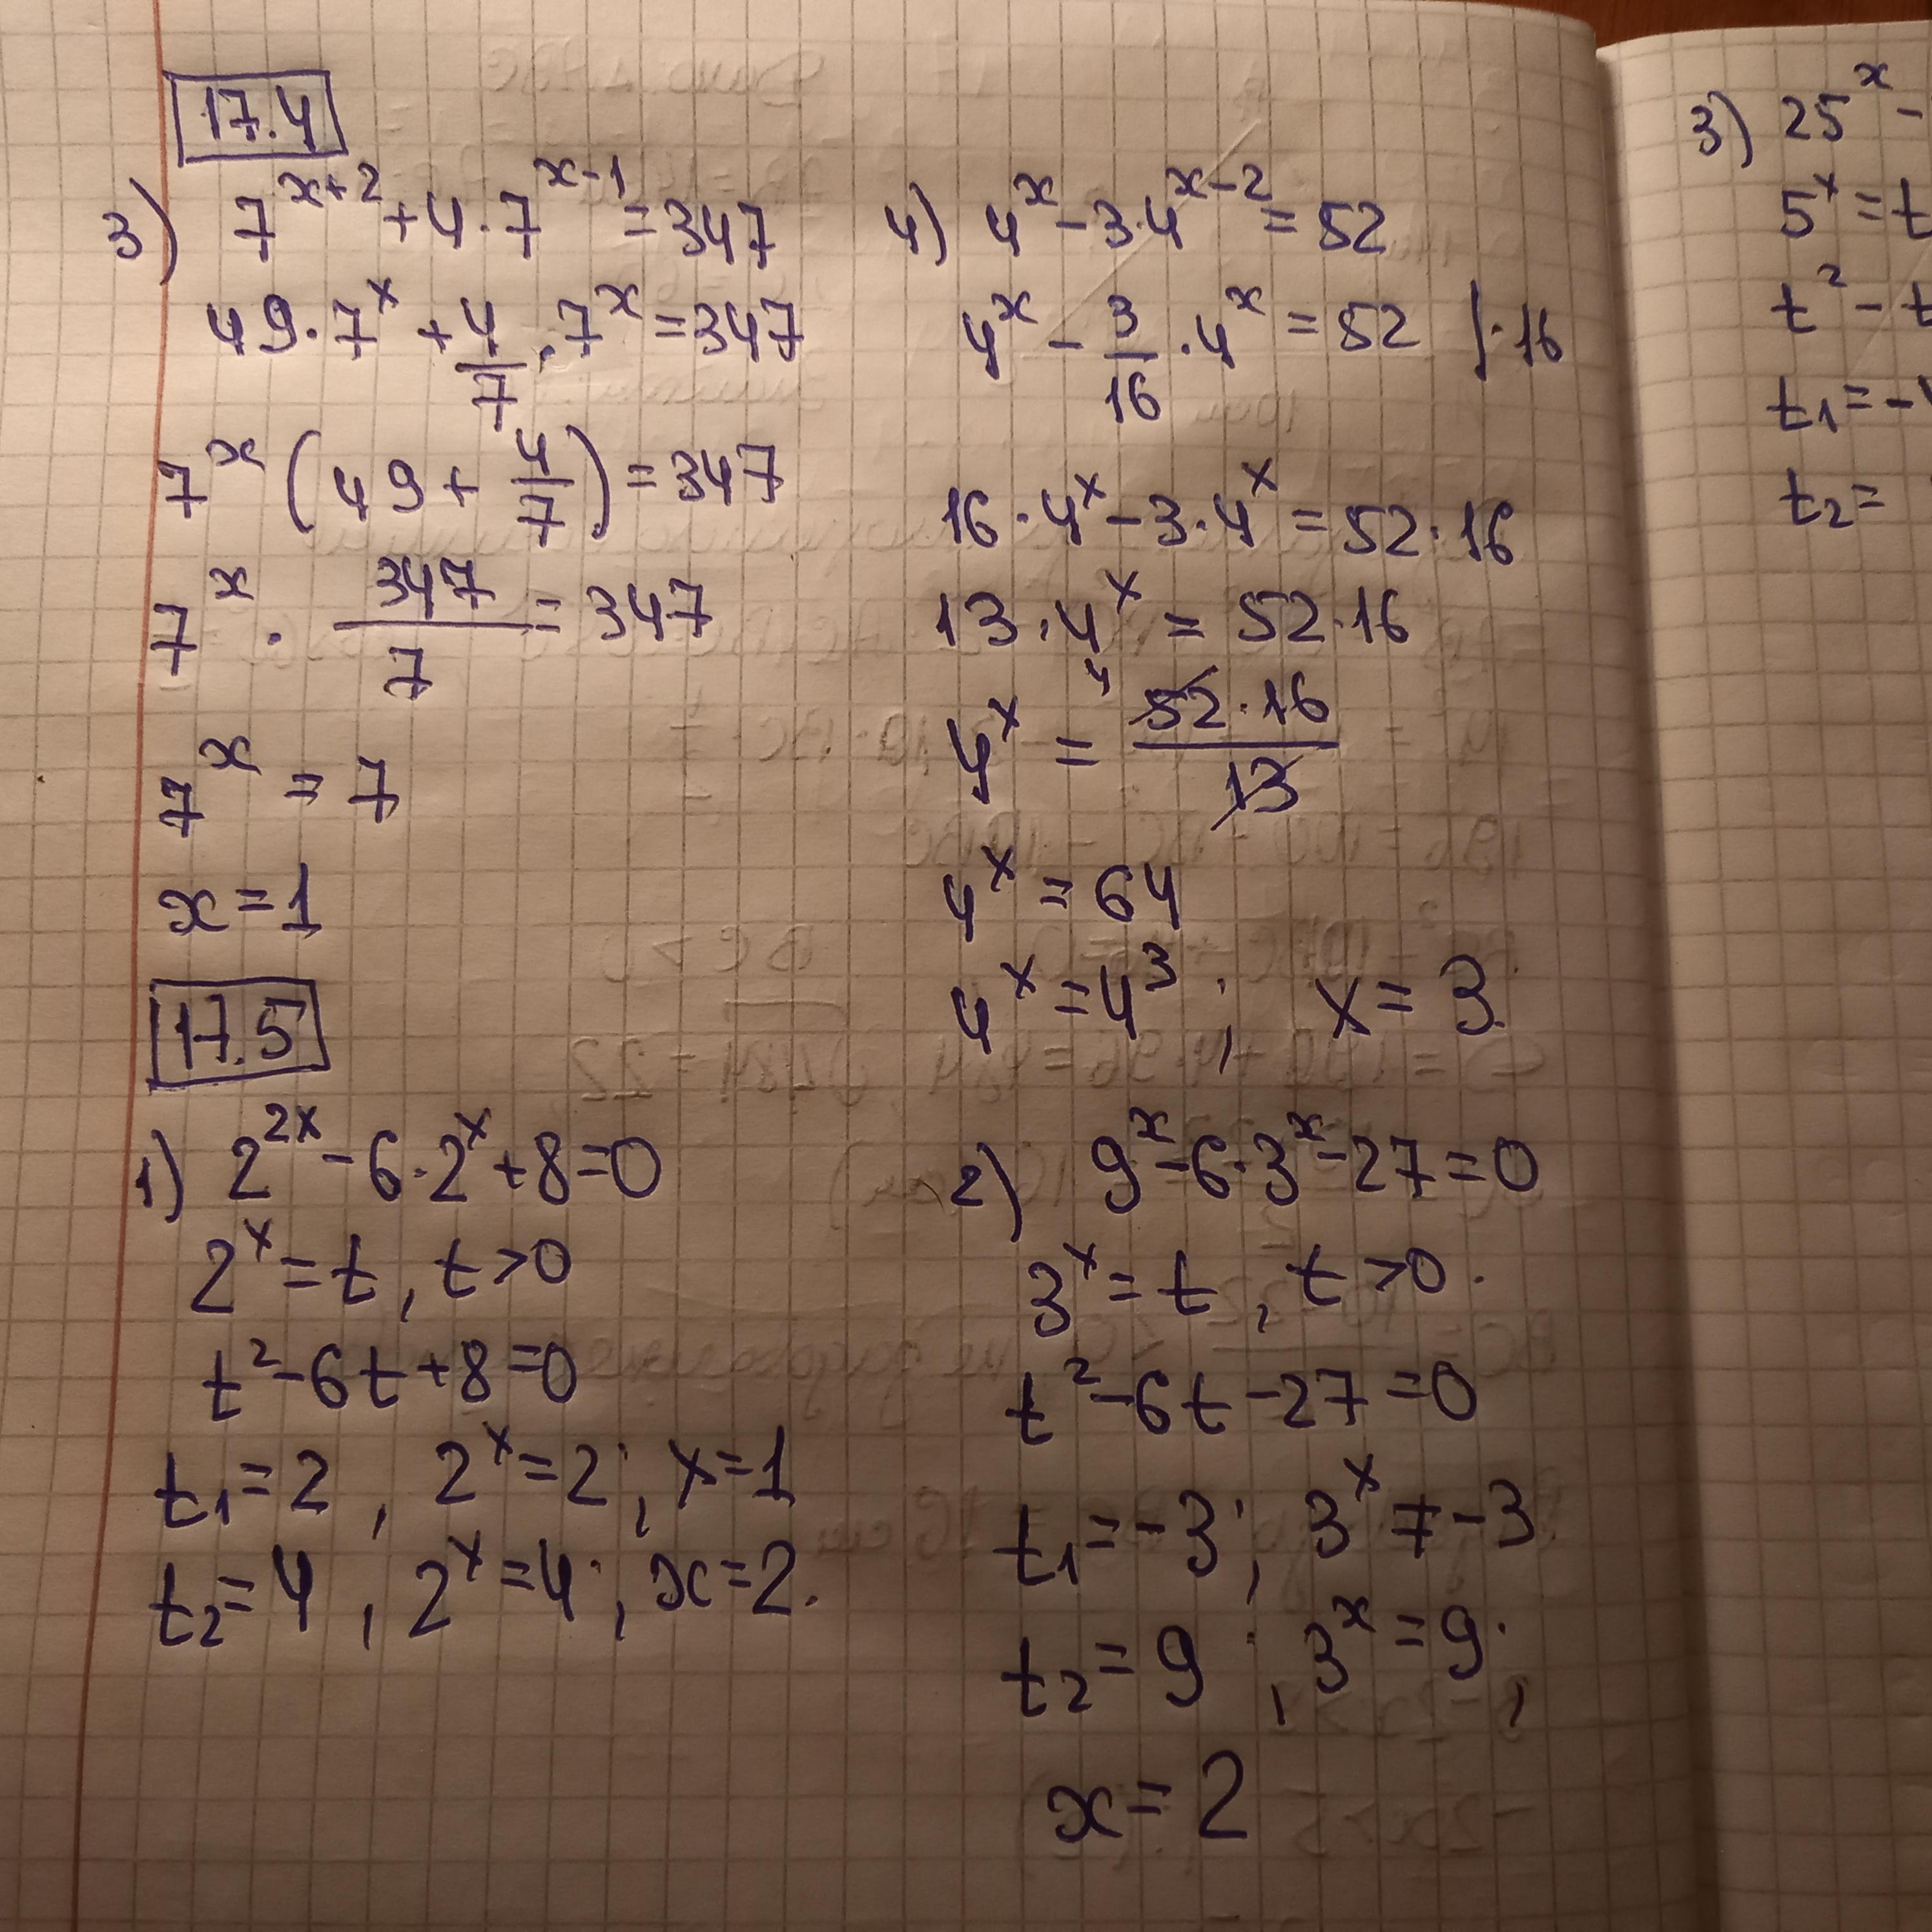 17.4
3) 7^{x+2} + 4 · 7^{x-1} = 347
49 · 7^x + 4/7 · 7^x = 347
7^x (49 + 4/7) = 347
7^x · 347/7 = 347
7^x = 7
x = 1
4) 4^x - 3 · 4^{x-2} = 52
4^x - 3/16 · 4^x = 52 | · 16
16 · 4^x - 3 · 4^x = 52 · 16
13 · 4^x = 52 · 16
4^x = 52 · 16 / 13
4
4^x = 64
4^x = 4^3 ; x = 3
17.5
1) 2^{2x} - 6 · 2^x + 8 = 0
2^x = t, t > 0
t^2 - 6t + 8 = 0
t_1 = 2, 2^x = 2; x = 1
t_2 = 4, 2^x = 4; x = 2.
2) 9^x - 6 · 3^x - 27 = 0
3^x = t, t > 0.
t^2 - 6t - 27 = 0
t_1 = -3; 3^x 7 - 3
t_2 = 9; 3^x = 9;
x = 2
3) 25^x -
5^x = t
t^2 - t
t_1 = -
t_2 =